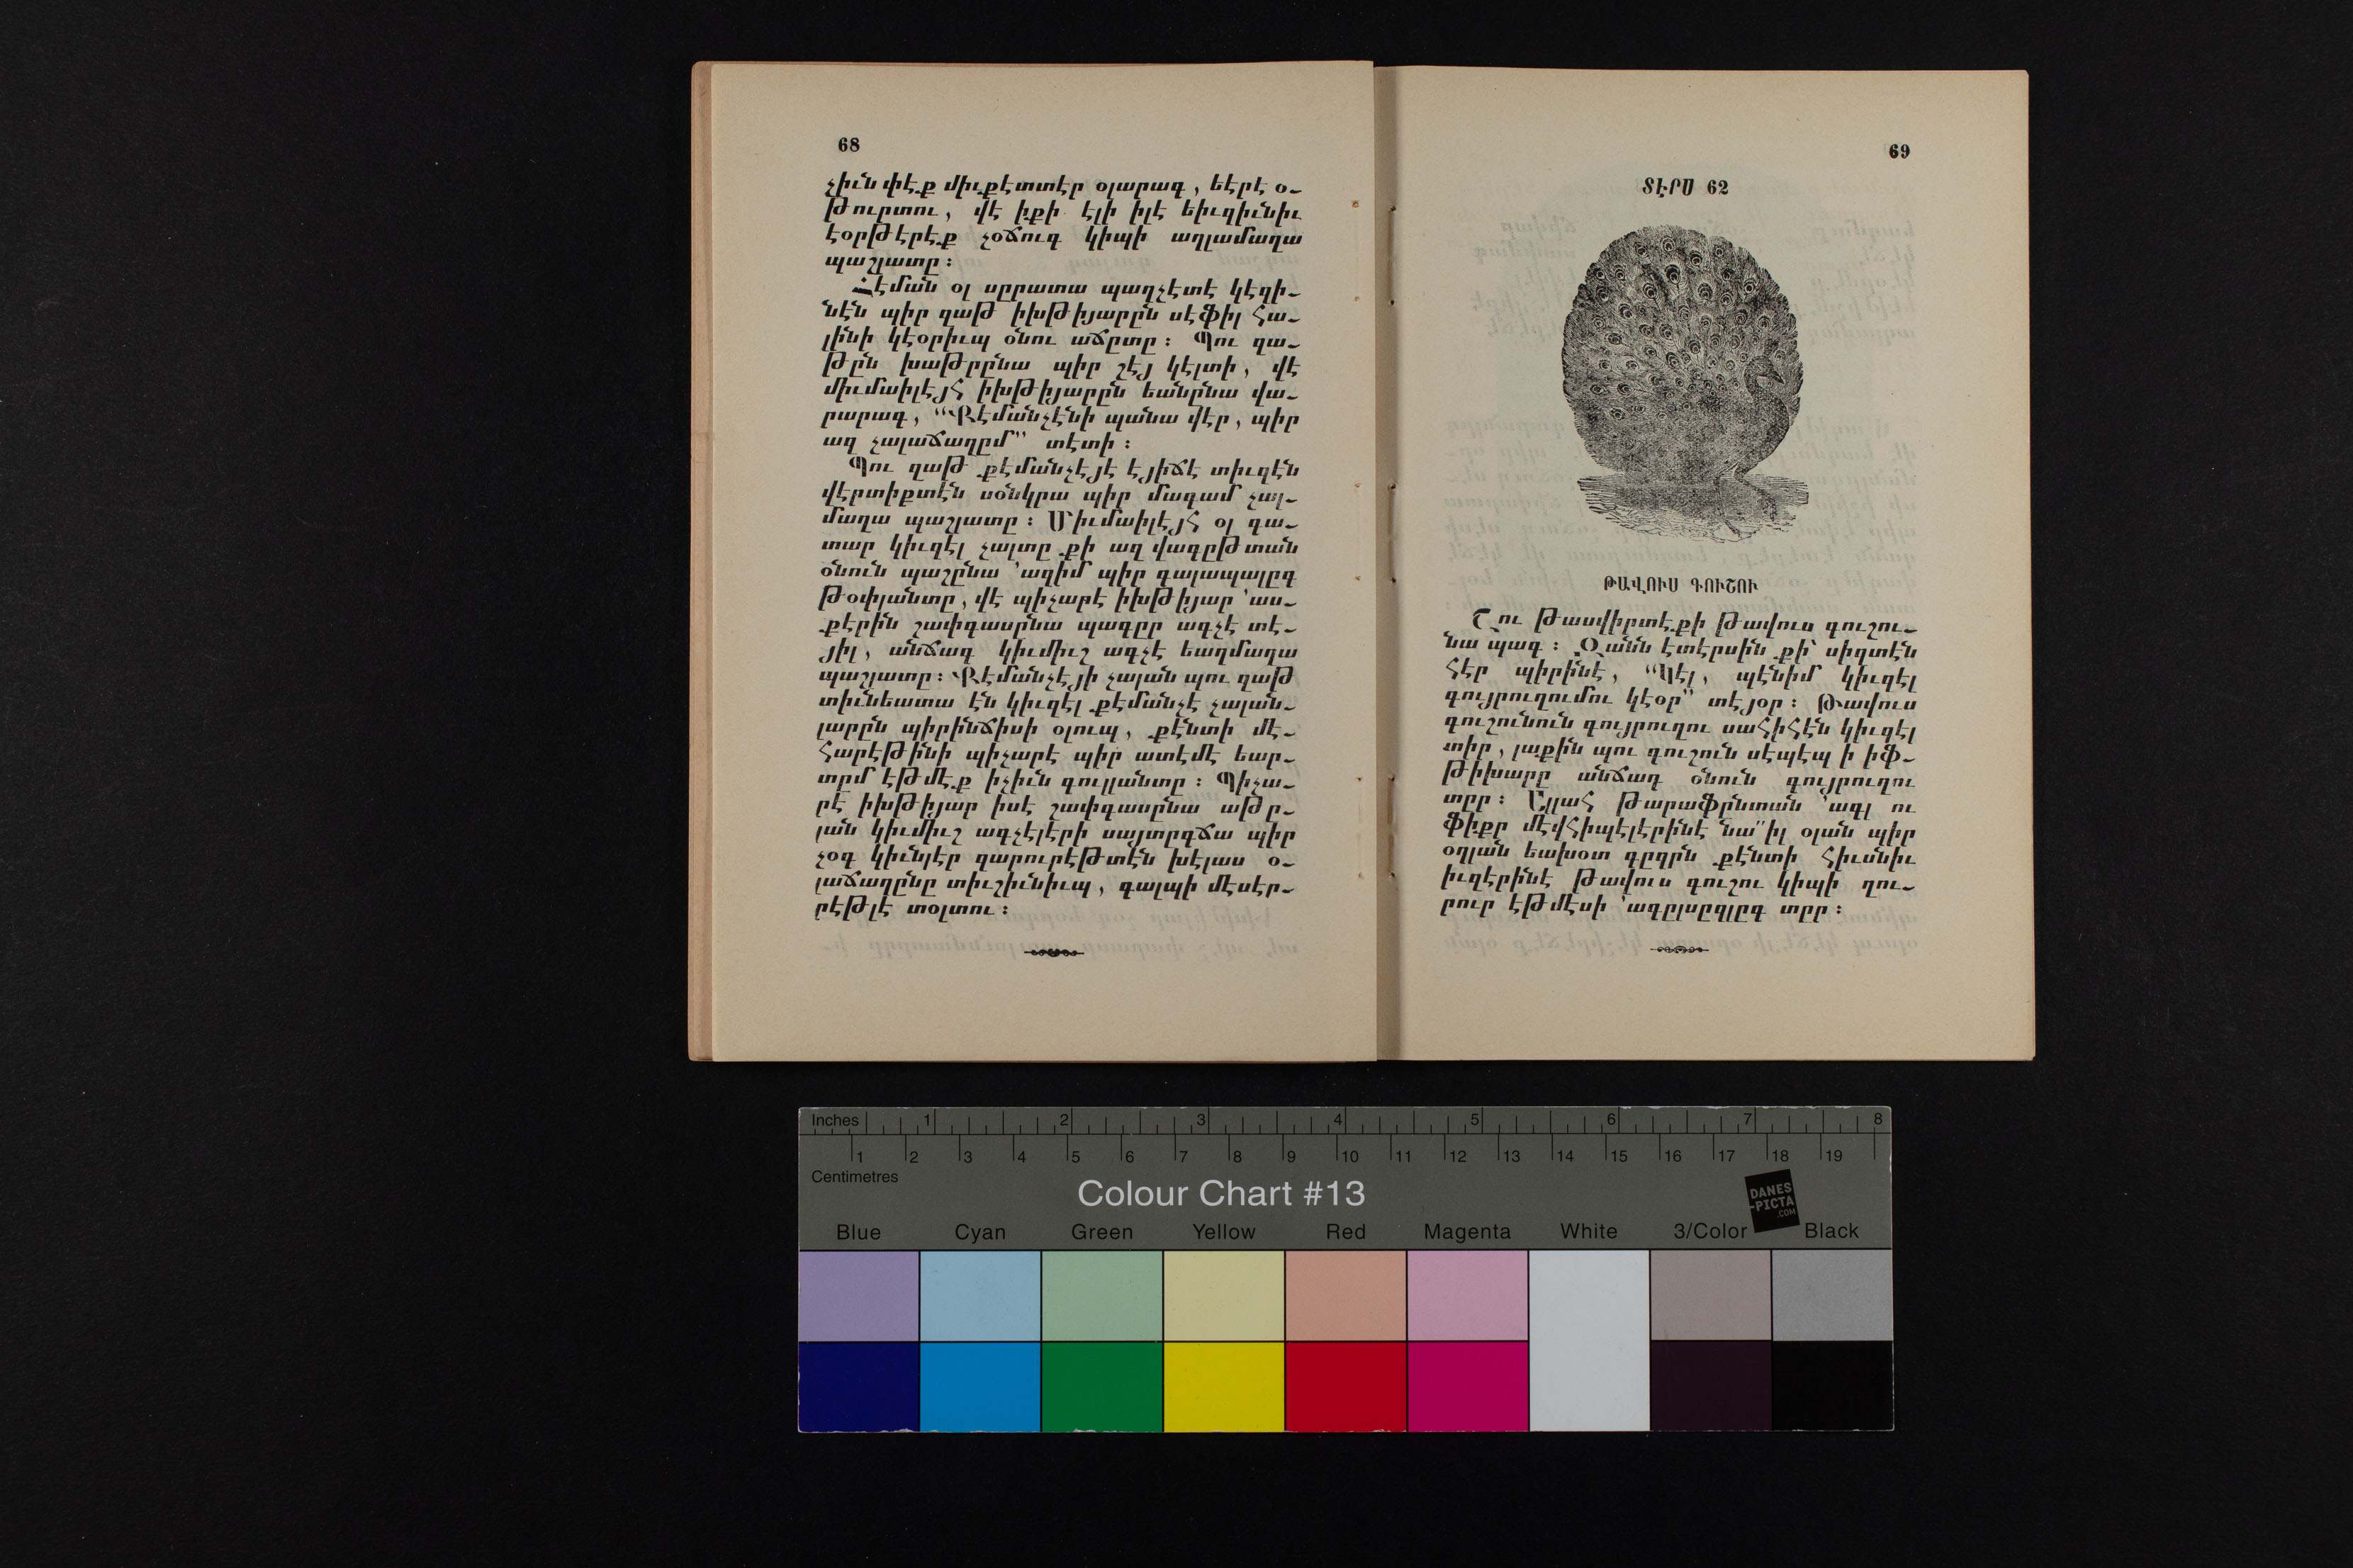 68
չիւն փէք միւքէտտէր օլարագ, եէրէ օ–
թուրտու, վէ իքի էլի իլէ եիւզիւնիւ
էօրթէրէք չօճուգ կիպի աղլամաղա
պաշլատը։
Հէման օլ սըրատա պաղչէտէ կէզի–
նէն պիր զաթ իխթիյարըն սէֆիլ հա–
լինի կէօրիւպ օնու աճըտը։ Պու զա–
թըն խաթըրընա պիր շէյ կէլտի, վէ
միւմաիլէյհ իխթիյարըն եանընա վա–
րարագ, “Քէմանչէնի պանա վէր, պիր
ազ չալաճաղըմ” տէտի։
Պու զաթ քէմանչէյէ էյիճէ տիւզէն
վէրտիքտէն սօնկրա պիր մագամ չալ–
մաղա պաշլատը։ Միւմաիլէյհ օլ գա–
տար կիւզէլ չալտը քի ազ վագըթտան
օնուն պաշընա ՚ազիմ պիր գալապալըգ
թօփլանտը, վէ պիչարէ իխթիյար ՚աս–
քէրին շափգասընա պագըր ագչէ տէ–
յիլ, անճագ կիւմիւշ ագչէ եաղմաղա
պաշլատը։ Քէմանչէյի չալան պու զաթ
տիւնեատա էն կիւզէլ քէմանչէ չալան–
լարըն պիրինճիսի օլուպ, քէնտի մէ–
հարէթինի պիչարէ պիր ատէմէ եար–
տըմ էթմէք իչիւն գուլլանտը։ Պիչա–
րէ իխթիյար իսէ շափգասընա աթը–
լան կիւմիւշ ագչէլէրի սայտըգճա պիր
չօգ կիւնլէր զարուրէթտէն խէլաս օ–
լաճաղընը տիւշիւնիւպ, գալպի մէսէր–
րէթլէ տօլտու։
69
ՏԷՐՍ 62
ԹԱՎՈՒՍ ԳՈՒՇՈՒ
Շու թասվիրտէքի թավուս գուշու–
նա պագ։ Զանն էտէրսին քի՝ սիզտէն
հէր պիրինէ, “Կէլ, պէնիմ կիւզէլ
գույրուղումու կէօր” տէյօր։ Թավուս
գուշունուն գույրուղու սահիհէն կիւզէլ
տիր, լաքին պու գուշուն սէպէպ ի իֆ–
թիխարը անճագ օնուն գույրուղու
տըր։ Ալլահ թարաֆընտան ՚ագլ ու
ֆիքր մէվհիպէլէրինէ նա՚՚իլ օլան պիր
օղլան եախօտ գըզըն քէնտի հիւսնիւ
իւզէրինէ թավուս գուշու կիպի ղու–
րուր էթմէսի ՚ագըլսըզլըգ տըր։
Inches 1 2 3 4 5 6 7 8
1 2 3 4 5 6 7 8 9 10 11 12 13 14 15 16 17 18 19
Centimetres
Colour Chart #13
DANES
-PICTA
.COM
Blue Cyan Green Yellow Red Magenta White 3/Color Black